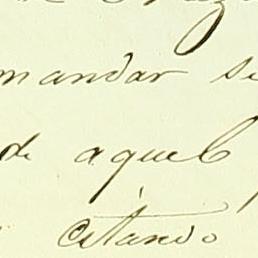 mandar se
de aquel
citando